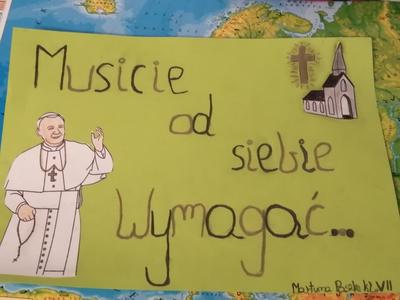 Musicie
od
siebie
Wymagać...
Martyna kl. VII